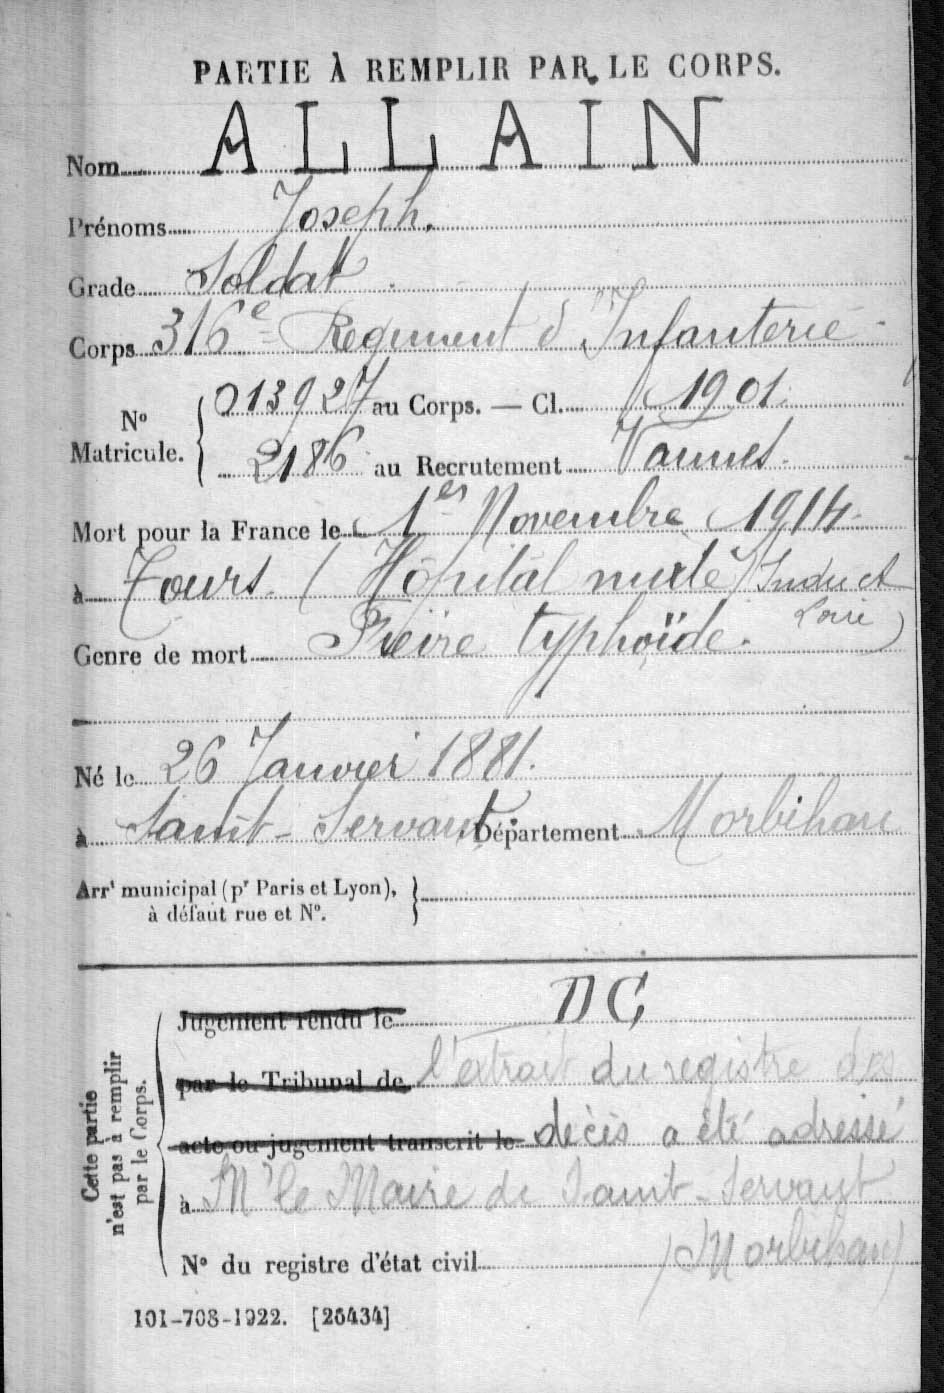 PARTIE À REMPLIR PAR LE CORPS.
Nom ALLAIN
Prénoms Joseph.
Grade Soldat
Corps 316e Régiment d'Infanterie
No Matricule. { 013927 au Corps. — Cl. 1901.
2186 au Recrutement Vannes.
Mort pour la France le 1er Novembre 1914.
à Tours. (Hôpital mixte) (Indre et
Loire)
Genre de mort Fièvre typhoïde.
Né le 26 Janvier 1881.
à Saint-Servant. Département Morbihan
Arrt municipal (pr Paris et Lyon),
à défaut rue et No. }
Cette partie
n'est pas à remplir
par le Corps.
Jugement rendu le DC
par le Tribunal de l'extrait du registre des
acte ou jugement transcrit le décès a été adressé
à Mr le Maire de Saint-Servant
(Morbihan)
No du registre d'état civil
101-708-1922. [26434]